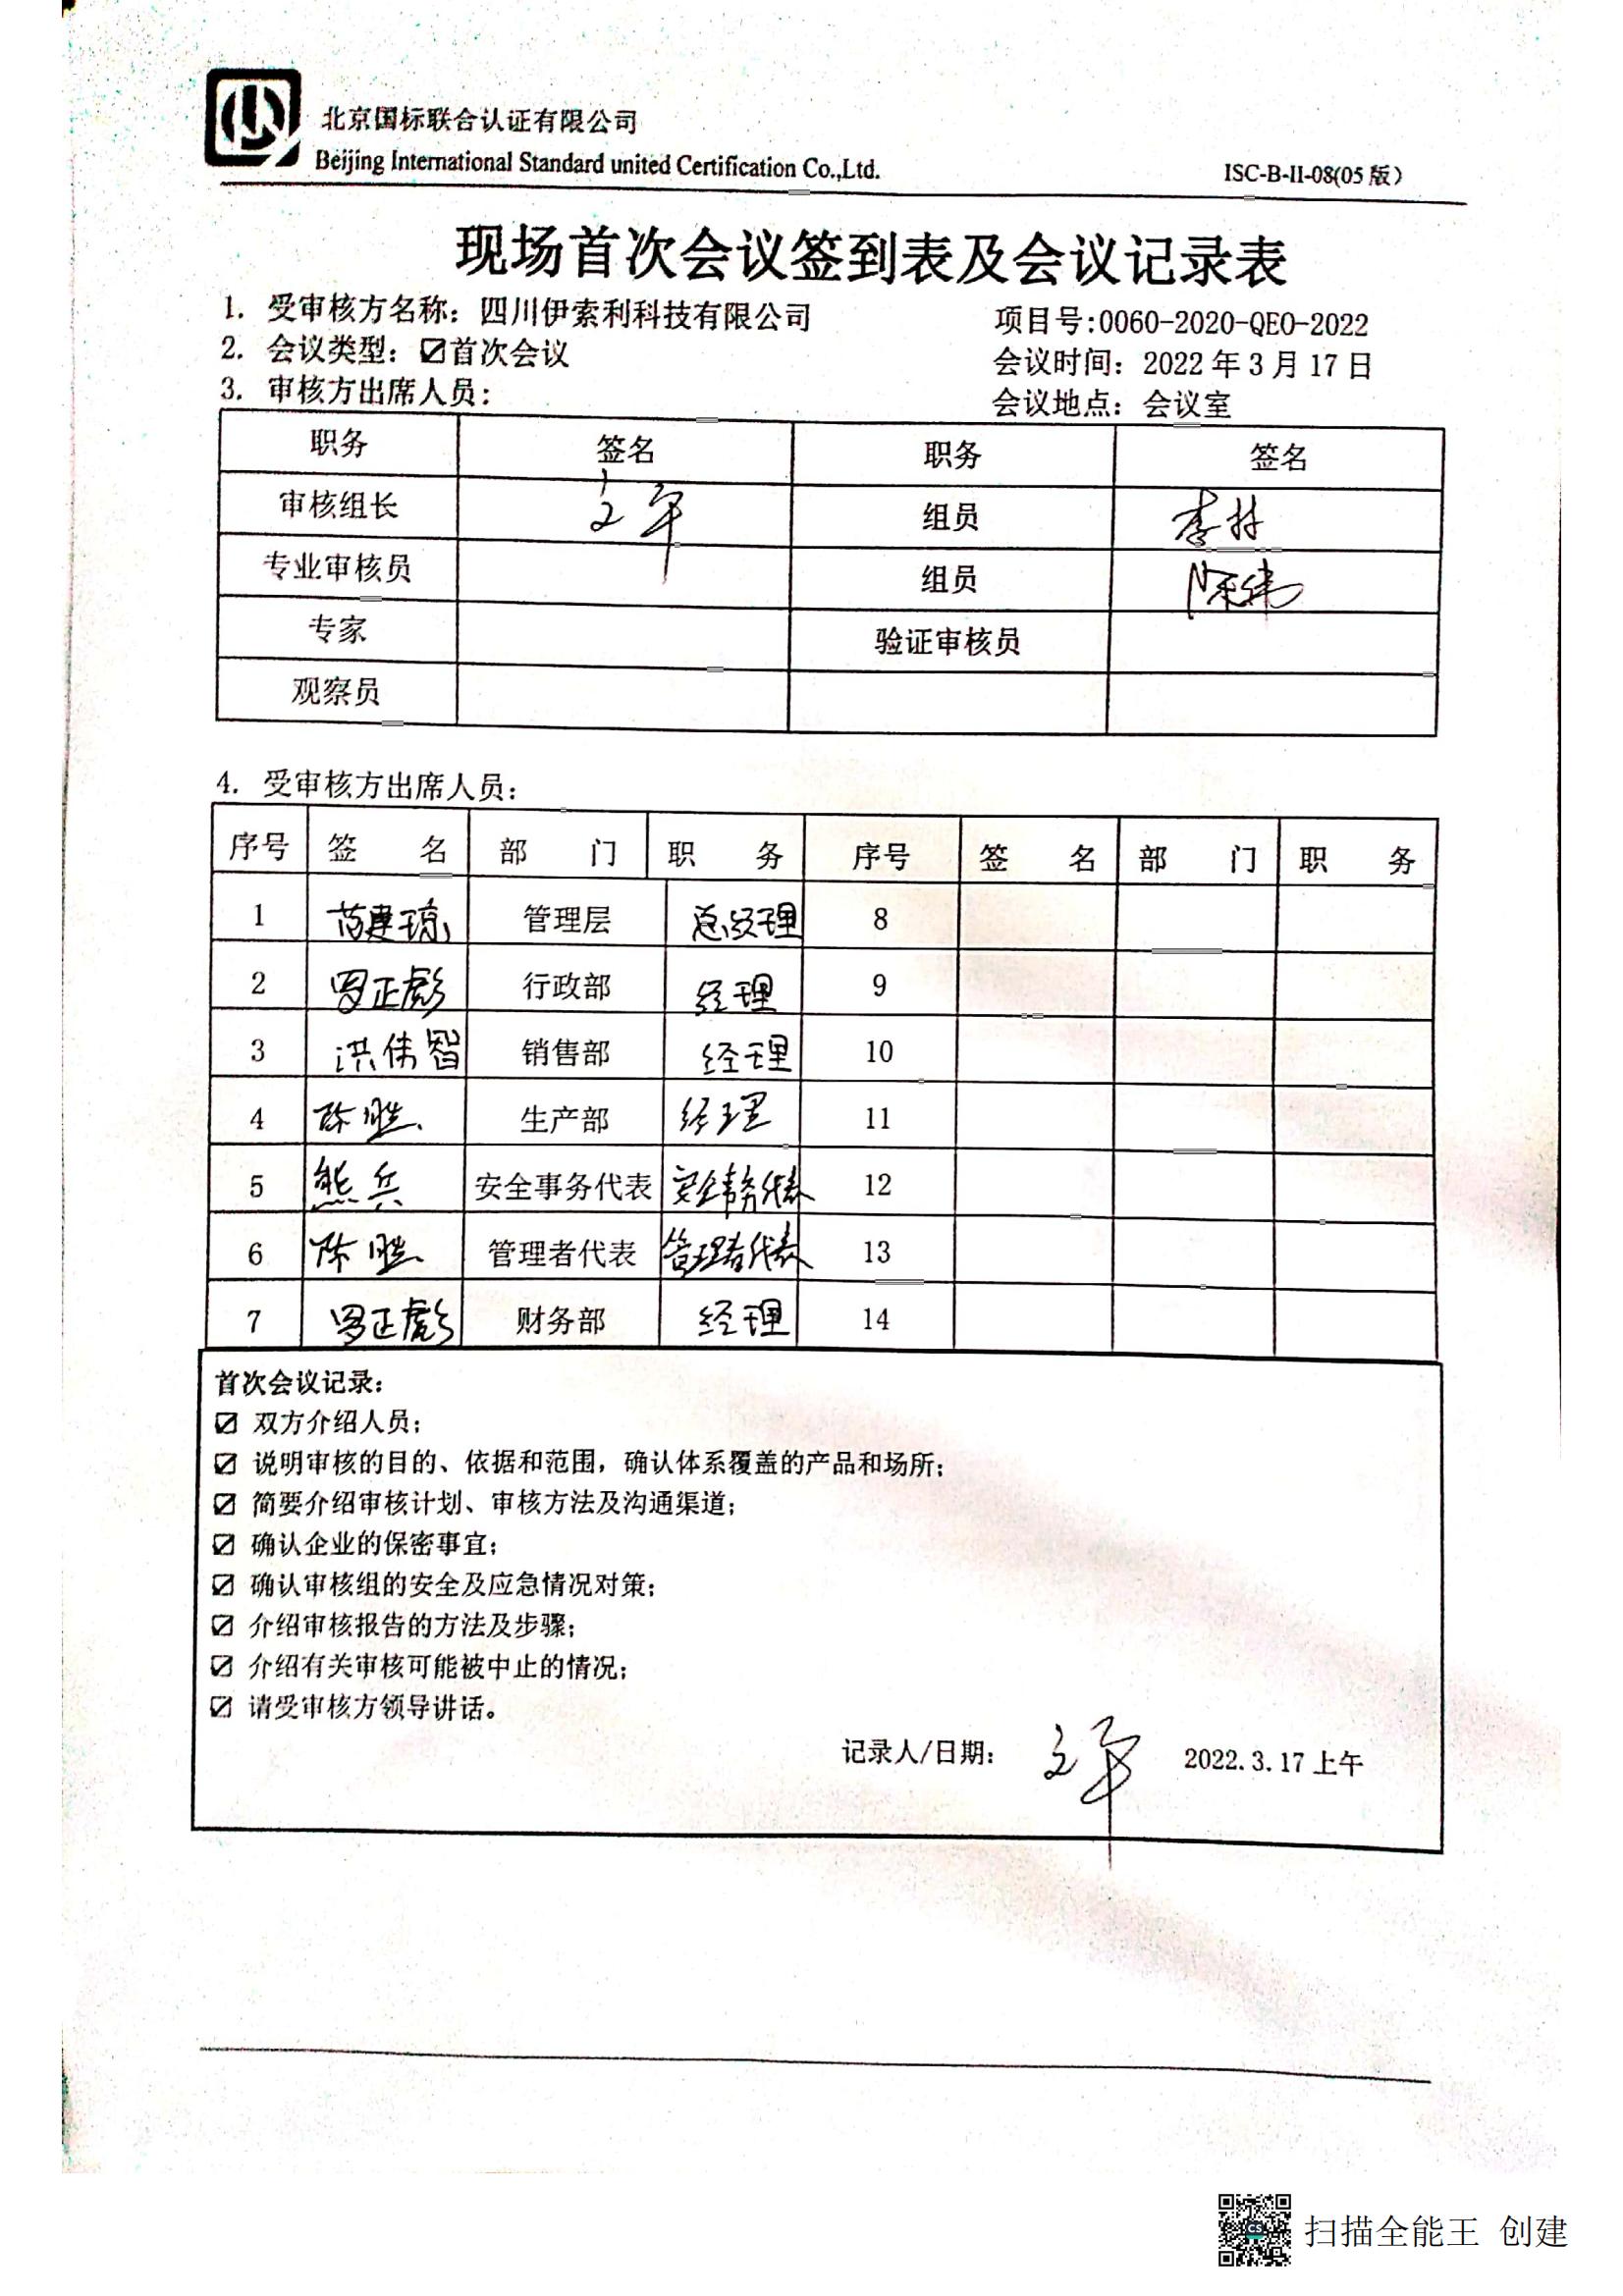 北京国标联合认证有限公司
Beijing International Standard united Certification Co.,Ltd.
ISC-B-II-08(05版)
现场首次会议签到表及会议记录表
1. 受审核方名称：四川伊索利科技有限公司 项目号:0060-2020-QEO-2022
2. 会议类型：☑首次会议 会议时间：2022年3月17日
3. 审核方出席人员： 会议地点：会议室
职务 签名 职务 签名
审核组长 文平 组员 李林
专业审核员 组员 陈伟
专家 验证审核员
观察员
4. 受审核方出席人员：
序号 签 名 部 门 职 务 序号 签 名 部 门 职 务
1 管理层 总经理 8
2 罗正彪 行政部 经理 9
3 洪伟智 销售部 经理 10
4 生产部 经理 11
5 熊兵 安全事务代表 安全事务代表 12
6 管理者代表 管理者代表 13
7 罗正彪 财务部 经理 14
首次会议记录：
☑ 双方介绍人员；
☑ 说明审核的目的、依据和范围，确认体系覆盖的产品和场所；
☑ 简要介绍审核计划、审核方法及沟通渠道；
☑ 确认企业的保密事宜；
☑ 确认审核组的安全及应急情况对策；
☑ 介绍审核报告的方法及步骤；
☑ 介绍有关审核可能被中止的情况；
☑ 请受审核方领导讲话。
记录人/日期： 文平 2022.3.17上午
CS
扫描全能王 创建